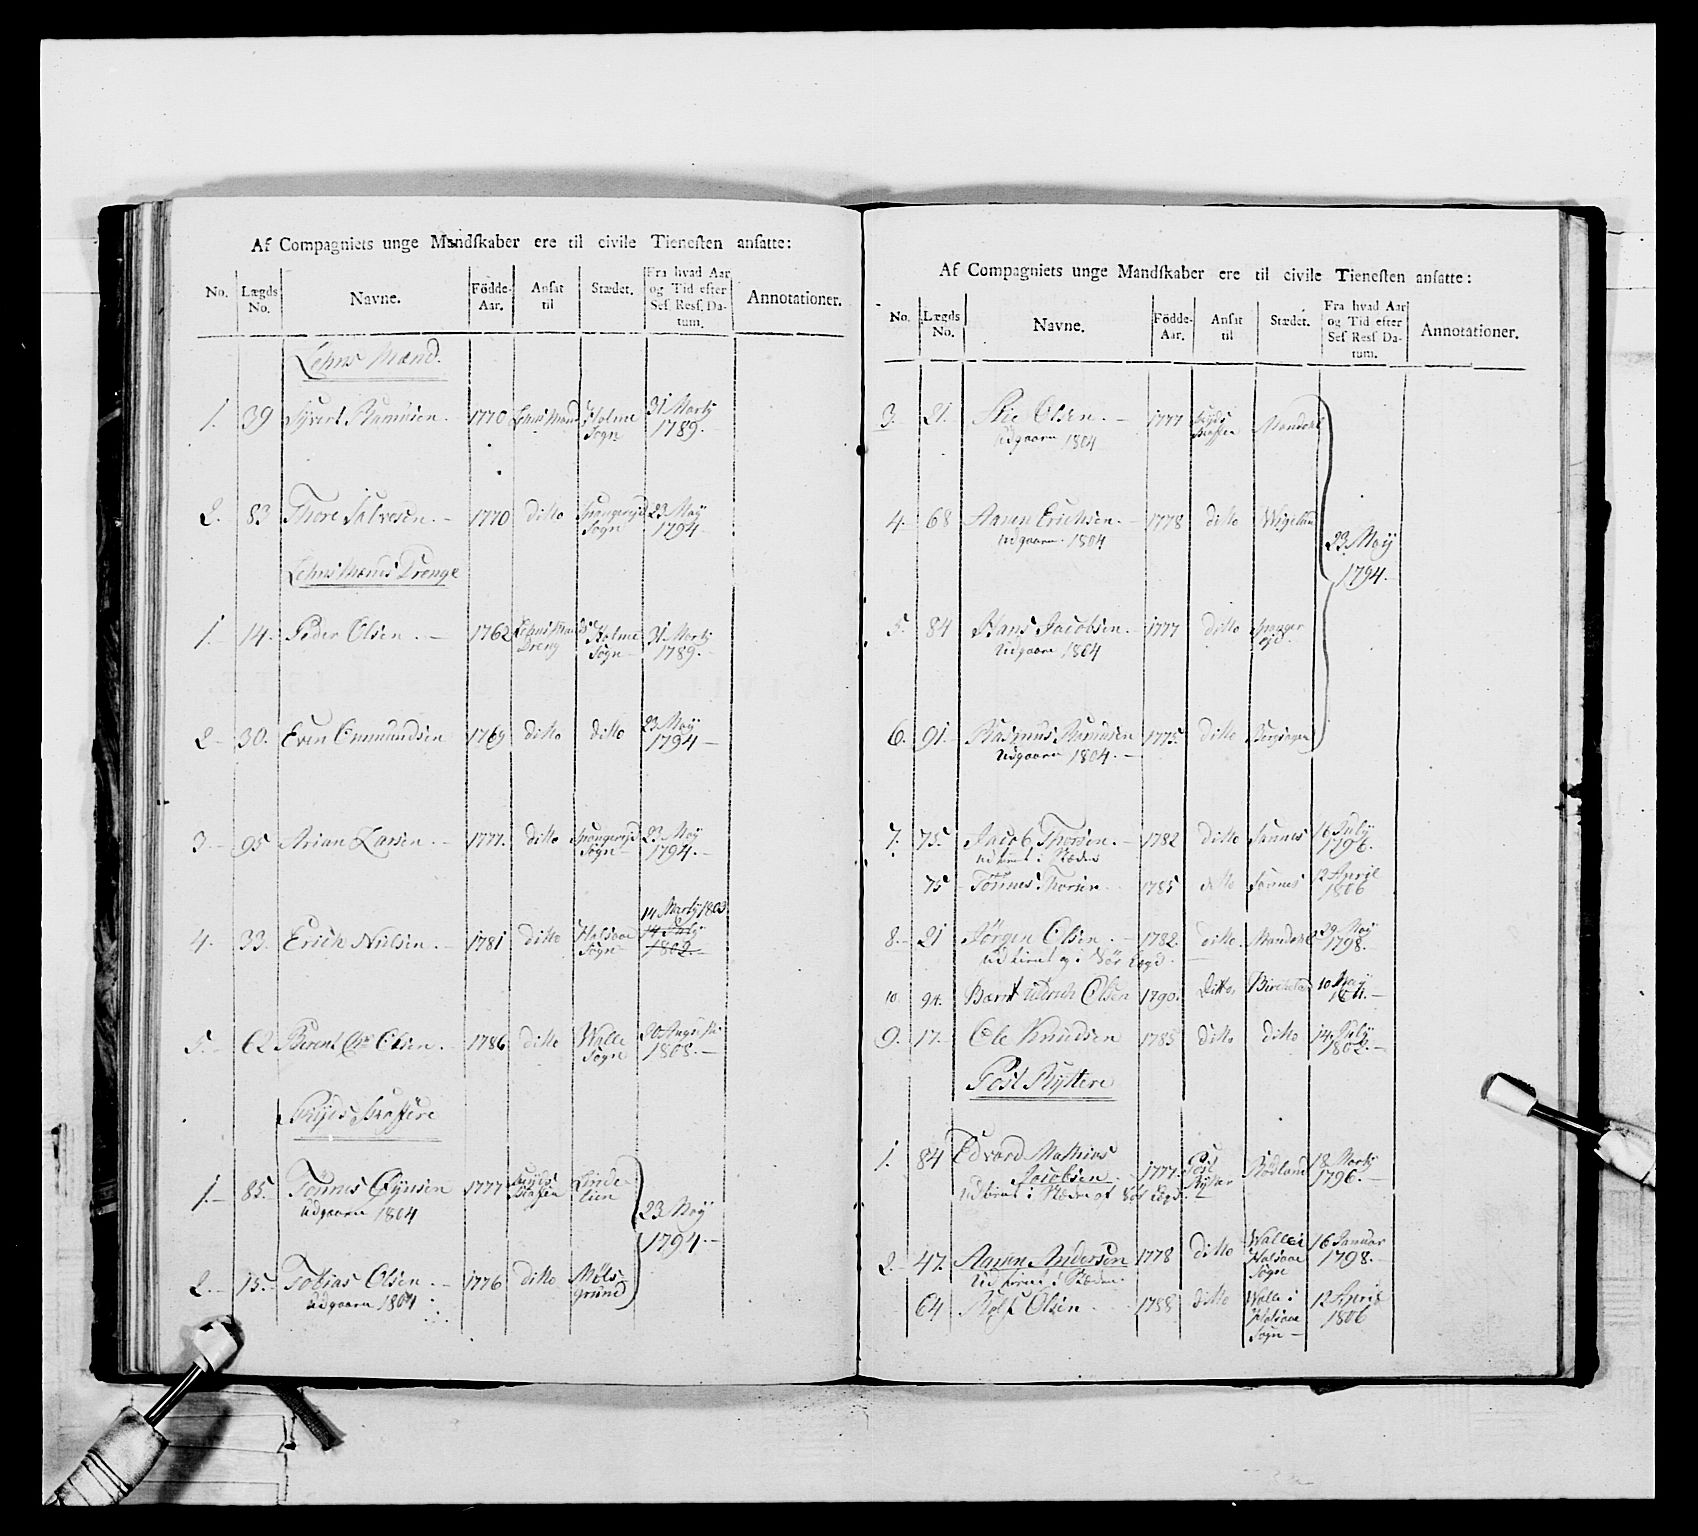 Af Compagniets unge Mandſkaber ere til civile Tieneſten anſatte:
No. Lægds No. Navne. Födde-Aar. Anſat til Stædet. Fra hvad Aar og Tid efter Seſ. Reſſ. Datum. Annotationer.
Lehns Mænd.
1. 39 Syvert Ramusen. 1770 Lehns Mand Holme Sogn 31 Martj 1789.
2. 83 Thore Salvesen. 1770 ditto Spangereid Sogn 23 May 1794
Lehns Mænds Drenge
1. 14. Peder Olsen. 1762 Lehns Mands Dreng Holme Sogn 31 Martj 1789.
2 30. Even Ommundsen 1769 ditto ditto 23 May 1794
3. 95 Arian Larsen. 1777. ditto Spangereid Sogn 23 May 1794.
4. 33. Erich Nielsen. 1781 ditto Halsaae Sogn 14 Martj 1803
14 July 1802.
5. 62 Berent Chr Olsen. 1786 ditto Walle Sogn 20 August 1808.
Skyds Skaffere
1. 85. Tönnes Öÿnsen 1777 Skyds Skaffer Linde lien
Udgaaen 1804
23 May 1794.
2. 15. Tobias Olsen. 1776 ditto Möls grund
Udgaaen 1804
Af Compagniets unge Mandſkaber ere til civile Tieneſten anſatte:
No. Lægds No. Navne. Födde-Aar. Anſat til Stædet. Fra hvad Aar og Tid efter Seſ Reſſ Datum. Annotationer.
3. 21. Olsen. 1777 Skyds Skaffer Mandahl
Udgaaen 1804
4. 68 Aanen Erichsen. 1778 ditto Wigeland
Udgaaen 1804
23 May 1794.
5. 84 Hans Jacobsen. 1777 ditto Spanger eid.
Udgaaen 1804
6. 91. Rasmus Ramusen 1775. ditto
Udgaaen 1804.
7. 75. Jacob Thorsen. 1782 ditto Sannes 16 July 1796.
75 Tönnes Thorsen 1785 ditto Sannes 12 April 1806
8. 21 Jörgen Olsen. 1782. ditto Mandahl 29 May 1798.
10. 94. Olsen 1790. Ditto 10 May 1811.
9. 17. Ole Knudsen 1785 ditto ditto 14 July 1802.
Post Ryttere
1. 84 Edvard Mathias Jacobsen 1777. Post Rytter Rödland 18 Martj 1796.
2. 47. Aanen Andersen 1778 ditto Walle i Halsaae Sogn 16 Januar 1798.
64 Rolf Olsen 1788 ditto Walle i Halsaae Sogn 12 April 1806